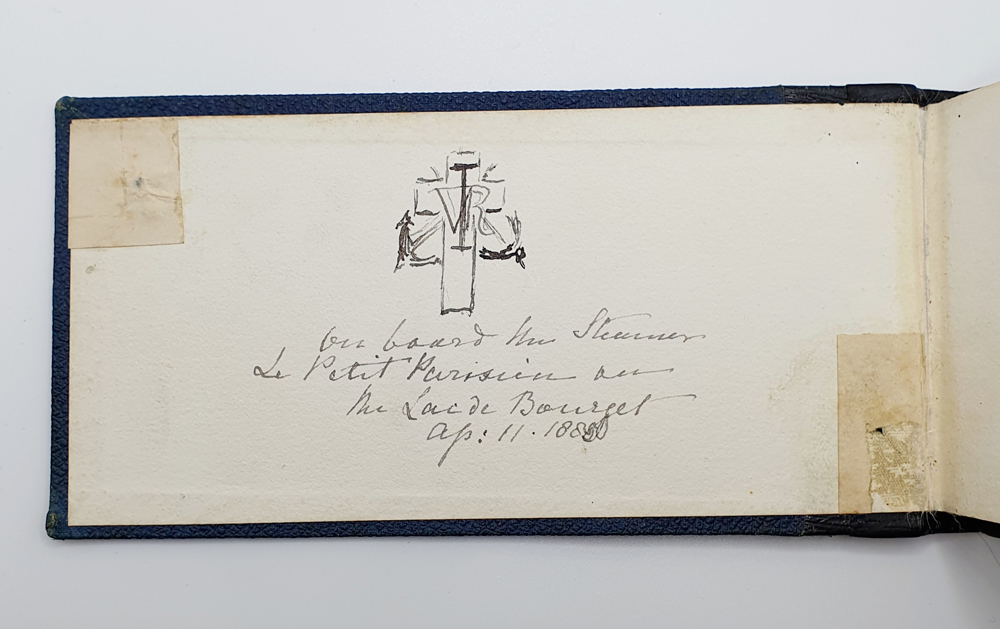 VRI
on board the Steamer
Le Petit Parisien on
the Lac de Bourget
Ap: 11. 188